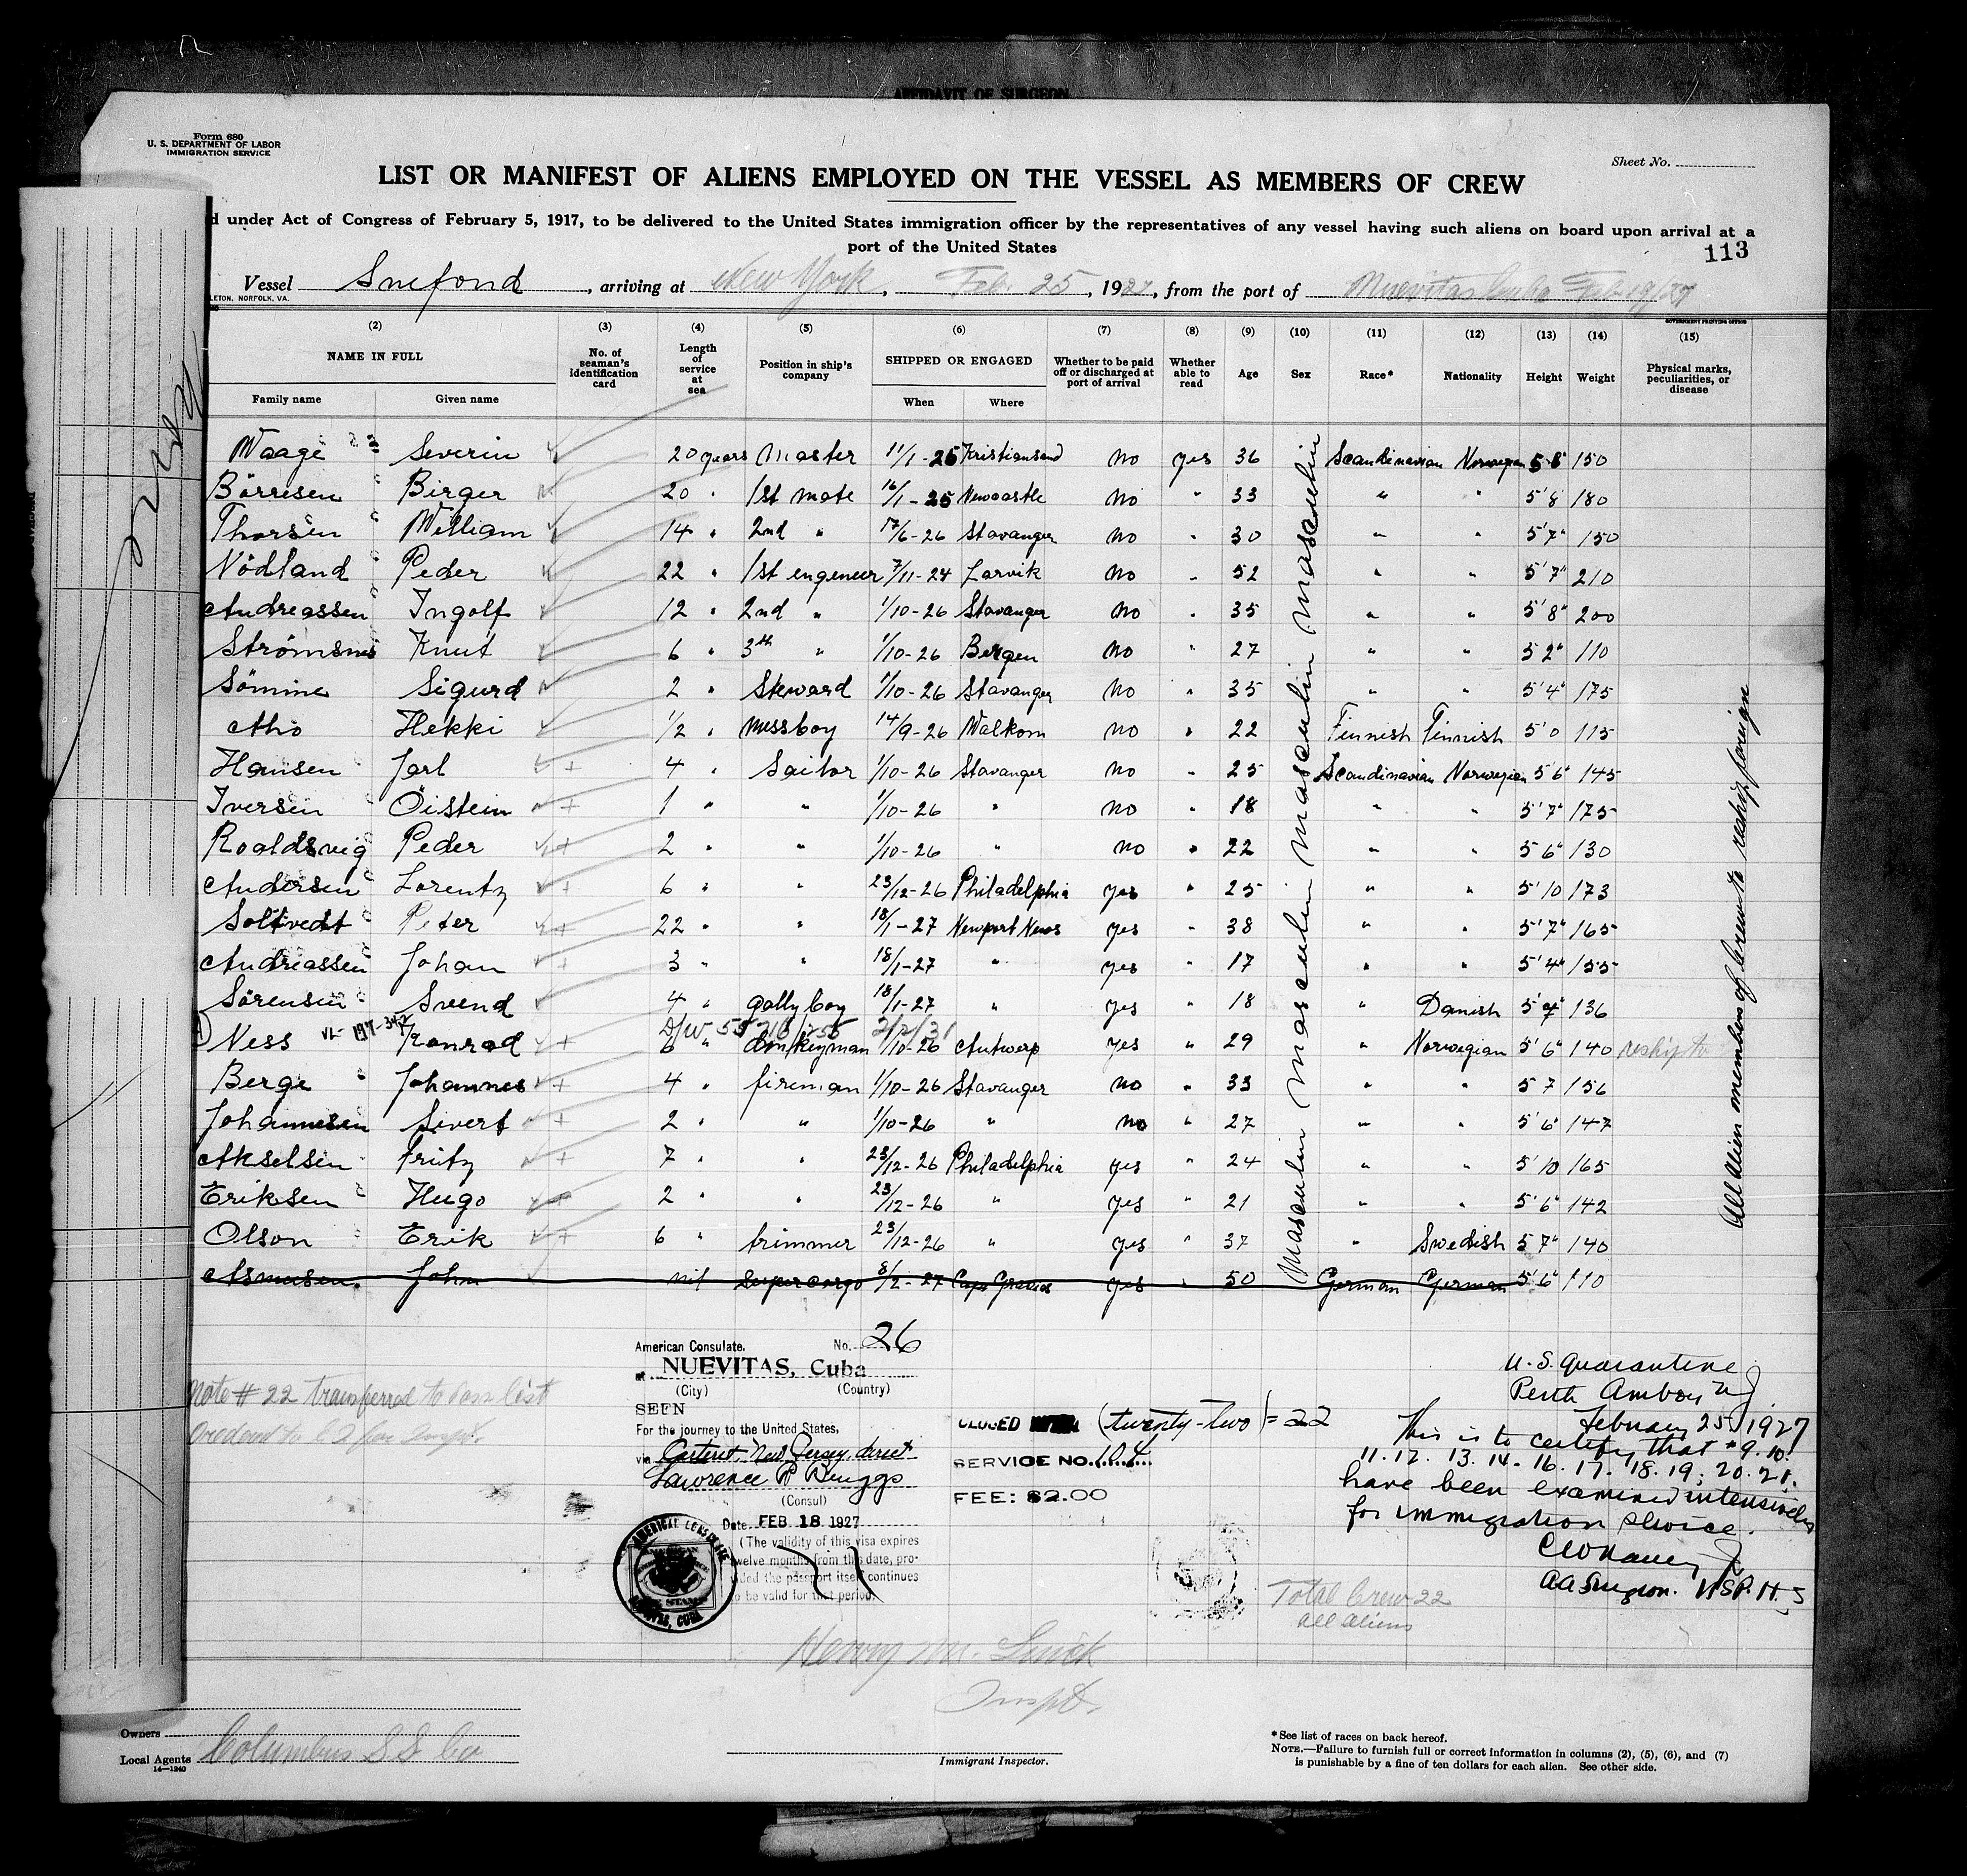 AFFIDAVIT OF SURGEON
Form 680
U. S. DEPARTMENT OF LABOR
IMMIGRATION SERVICE
Sheet No.
LIST OR MANIFEST OF ALIENS EMPLOYED ON THE VESSEL AS MEMBERS OF CREW
d under Act of Congress of February 5, 1917, to be delivered to the United States immigration officer by the representatives of any vessel having such aliens on board upon arrival at a
port of the United States
113
Vessel Snefond, arriving at New York, Feb. 25, 1927, from the port of Nuevitas Cuba Feb 19/27
LETON, NORFOLK, VA.
GOVERNMENT PRINTING OFFICE
(2) (3) (4) (5) (6) (7) (8) (9) (10) (11) (12) (13) (14) (15)
NAME IN FULL No. of seaman's identification card Length of service at sea Position in ship's company SHIPPED OR ENGAGED Whether to be paid off or discharged at port of arrival Whether able to read Age Sex Race* Nationality Height Weight Physical marks, peculiarities, or disease
Family name Given name When Where
Waage Severin 20 years Master 11/1-25 Kristiansand no yes 36 Scandinavian Norwegian 5 8" 150
Börresen Birger 20 " 1st mate 16/1-25 Newcastle no " 33 " " 5'8 180
Thorsen William 14 " 2nd " 17/6-26 Stavanger no " 30 " " 5'7" 150
Nödland Peder 22 " 1st engeneer 7/11-24 Larvik no " 52 " " 5'7" 210
Andreassen Ingolf 12 " 2nd " 1/10-26 Stavanger no " 35 " " 5'8" 200
Strømsnes Knut 6 " 3th " 1/10-26 Bergen no " 27 " " 5 2" 110
Sömme Sigurd 2 " Steward 1/10-26 Stavanger no " 35 " " 5'4" 175
Aho Hekki 1/2 " messboy 14/9-26 Walkom no " 22 Finnish Finnish 5'0 115
Hansen Jarl 4 " Sailor 1/10-26 Stavanger no " 25 Scandinavian Norwegian 5 6" 145
Iversen Öistein 1 " " 1/10-26 " no " 18 " " 5'7" 175
Roaldsvig Peder 2 " " 1/10-26 " no " 22 " " 5 6" 130
Andersen Lorentz 6 " " 23/12-26 Philadelphia yes " 25 " " 5'10 173
Soltvedt Peter 22 " " 18/1-27 Newport News yes " 38 " " 5'7" 165
Andreassen Johan 3 " " 18/1-27 " yes " 17 " " 5'4" 155
Sörensen Svend 4 " gally boy 18/1-27 " yes " 18 " Danish 5'7" 136
Ness Konrad 6 " donkeyman 1/10-26 Antwerp yes " 29 " Norwegian 5'6" 140 reship to
Berge Johannes 4 " fireman 1/10-26 Stavanger no " 33 " " 5 7 156
Johannesen Sivert 2 " " 1/10-26 " no " 27 " " 5'6" 147
Akselsen Fritz 7 " " 23/12-26 Philadelphia yes " 24 " " 5'10 165
Eriksen Hugo 2 " " 23/12-26 " yes " 21 " " 5'6" 142
Olson Erik 6 " trimmer 23/12-26 " yes " 37 " Swedish 5 7" 140
Asmusen John nil Supercargo 8/2-27 yes " 50 German German 5'6" 110
masculin masculin masculin masculin masculin
All alien members of crew to reship foreign
American Consulate. No. 26
NUEVITAS, Cuba
(City) (Country)
SEEN
For the journey to the United States,
via Carteret, New Jersey, direct
Lawrence P. Briggs
(Consul)
Date FEB 18 1927
(The validity of this visa expires
twelve months from this date, pro-
vided the passport itself continues
to be valid for that period.
AMERICAN CONSULATE
NUEVITAS, CUBA
Note # 22 transferred to pass list
CLOSED (twenty-two) = 22
SERVICE NO. 104
FEE: $2.00
U. S. Quarantine
Perth Amboy NJ
February 25 1927
This is to certify that # 9. 10.
11. 12. 13. 14. 16. 17. 18. 19. 20. 21.
have been examined intensively
for immigration service.
AA Surgeon. USP.H.S
Total Crew 22
all aliens
Henry M.
Inspt.
Owners
Local Agents Columbus S S Co
14—1240
Immigrant Inspector.
*See list of races on back hereof.
NOTE.—Failure to furnish full or correct information in columns (2), (5), (6), and (7)
is punishable by a fine of ten dollars for each alien. See other side.